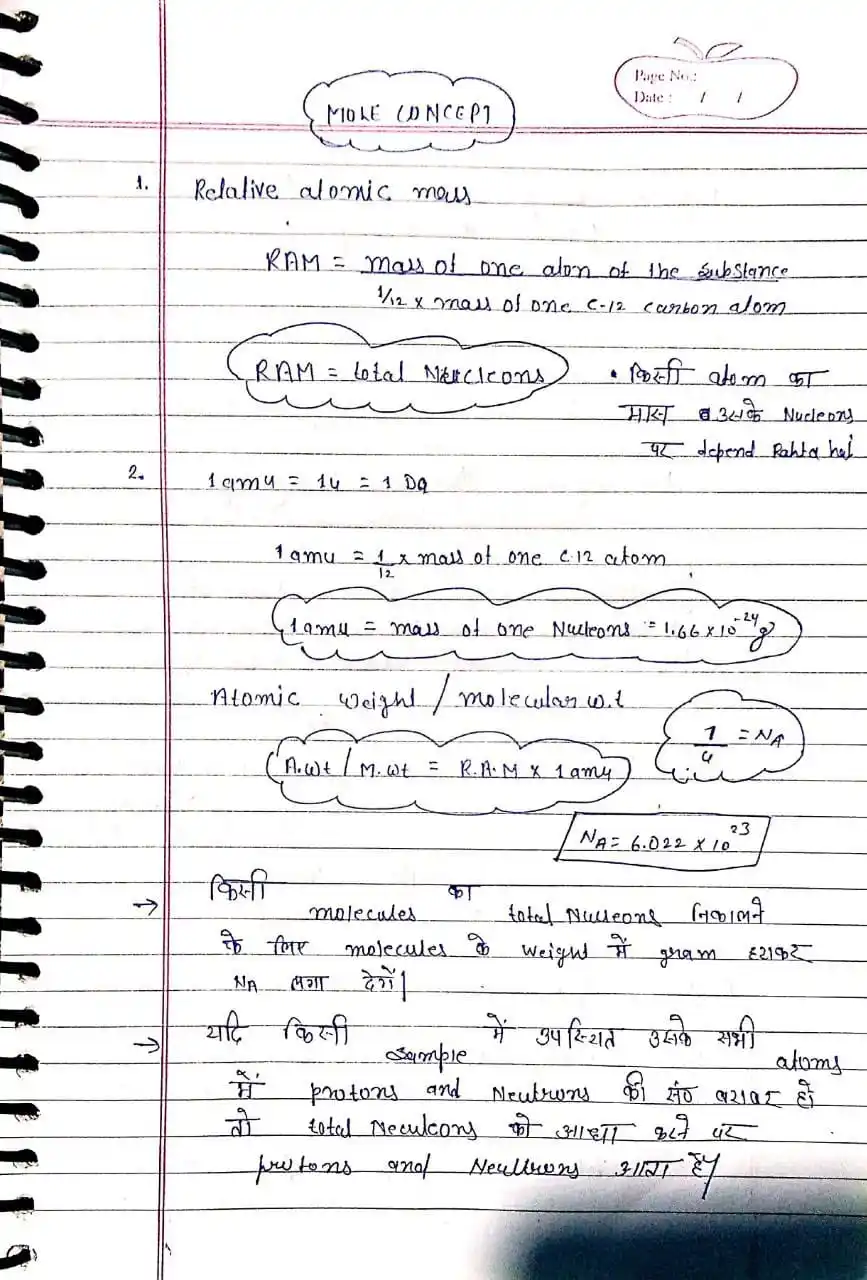 Page No.:
Date : / /
MOLE CONCEPT
1. Relative atomic mass
RAM = mass of one atom of the substance
1/12 x mass of one C-12 carbon atom
RAM = total Nucleons
• किसी atom का
मास व उसके Nucleons
पर depend Rahta hai
2. 1 amu = 1u = 1 Da
1 amu = 1/12 x mass of one C-12 atom
1 amu = mass of one Nucleons = 1.66 x 10^-24 g
Atomic weight / molecular w.t
1/u = NA
A.wt / M.wt = R.A.M x 1 amu
NA = 6.022 x 10^23
→ किसी molecules का total Nucleons निकालने
के लिए molecules के weight में gram हटाकर
NA लगा देगें|
→ यदि किसी sample में उपस्थित उसके सभी atoms
में protons and Neutrons की सं० बराबर हो
तो total Neculcons को आधा करने पर
protons and Neutrons आता है|